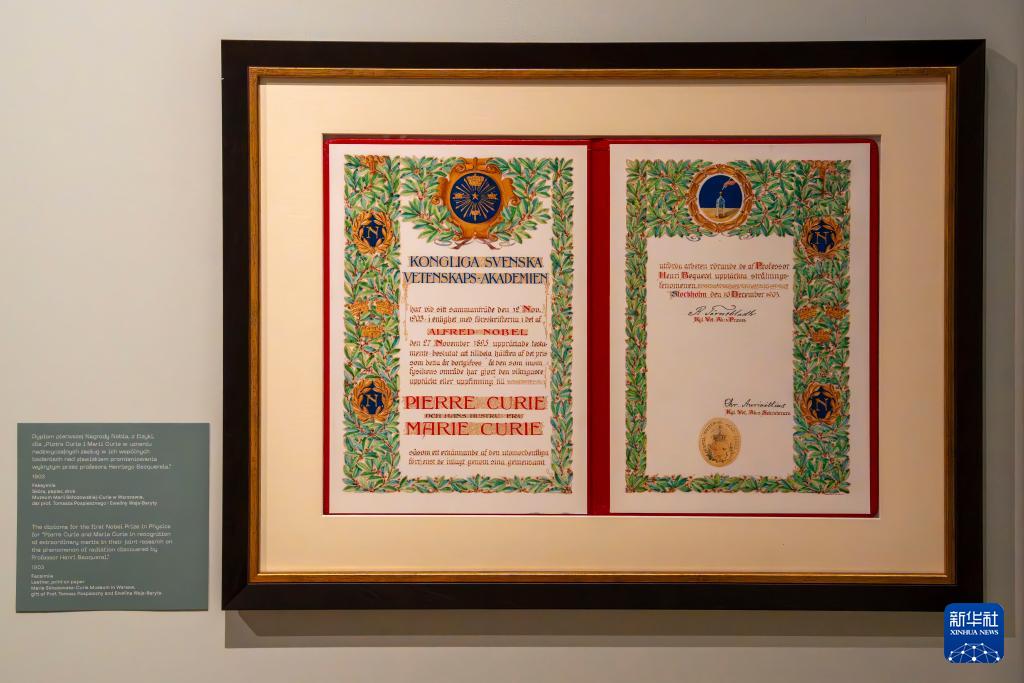 KONGLIGA SVENSKA
VETENSKAPS-AKADEMIEN
har vid sitt sammanträde den 12 Nov.
1903 i enlighet med föreskrifterna i det af
ALFRED NOBEL
den 27 November 1895 upprättade testa-
mente beslutat att tilldela hälften af det pris
som detta år bortgifves åt den som inom
fysikens område har gjort den viktigaste
upptäckt eller uppfinning till
PIERRE CURIE
OCH HANS HUSTRU FRU
MARIE CURIE
såsom ett erkännande af den utomordentliga
förtjenst de inlagt genom sina gemensamt
utförda arbeten rörande de af Professor
Henri Becquerel upptäckta strålnings-
fenomenen.
Stockholm den 10 December 1903.
Kgl. Vet. Akts Præses
Kgl. Vet. Akts Sekreterare
N
N
N
N
Dyplom pierwszej Nagrody Nobla z fizyki
dla „Pierre Curie i Marii Curie w uznaniu
nadzwyczajnych zasług w ich wspólnych
badaniach nad zjawiskiem promieniowania
wykrytym przez profesora Henriego Becquerela."
1903
Faksymile
Skóra, papier, druk
Muzeum Marii Skłodowskiej-Curie w Warszawie,
dar prof. Tomasza Pospiesznego i Eweliny Wajs-Baryły
The diploma for the first Nobel Prize in Physics
for "Pierre Curie and Marie Curie in recognition
of extraordinary merits in their joint research on
the phenomenon of radiation discovered by
Professor Henri Becquerel."
1903
Facsimile
Leather, print on paper
Maria Skłodowska-Curie Museum in Warsaw,
gift of Prof. Tomasz Pospieszny and Ewelina Wajs-Baryła
新华社
XINHUA NEWS